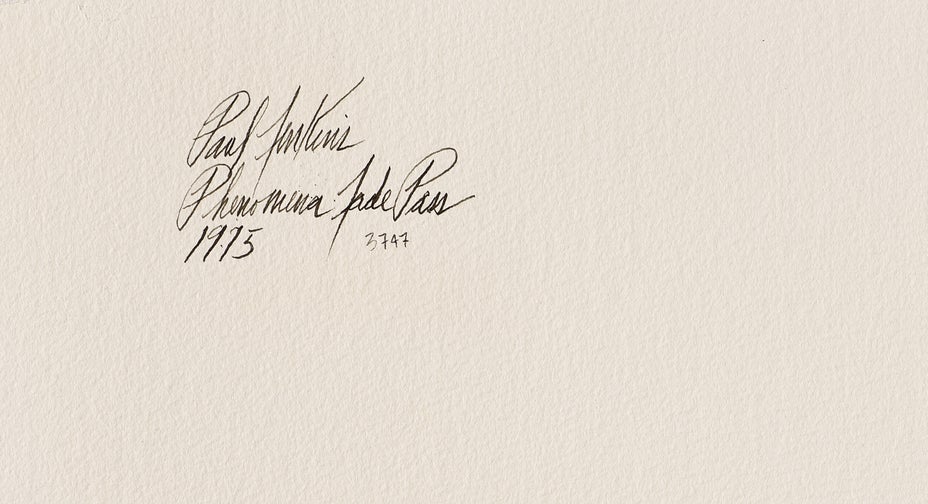 Paul Jenkins
Phenomena Jade Pass
1975 3747